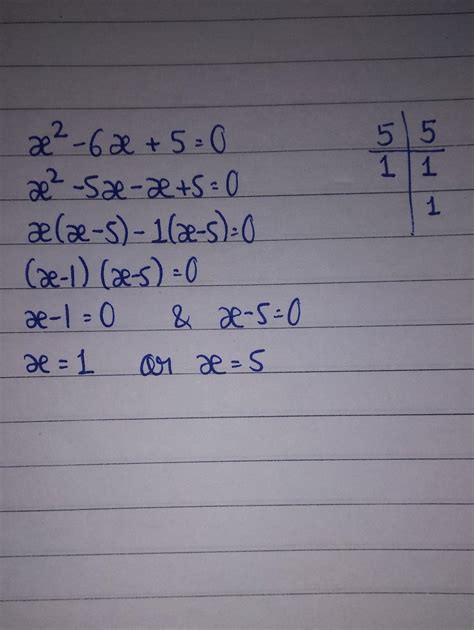 x² - 6x + 5 = 0
x² - 5x - x + 5 = 0
x(x-5) - 1(x-5) = 0
(x-1) (x-5) = 0
x-1 = 0 & x-5 = 0
x = 1 or x = 5
5 | 5
1 | 1
| 1